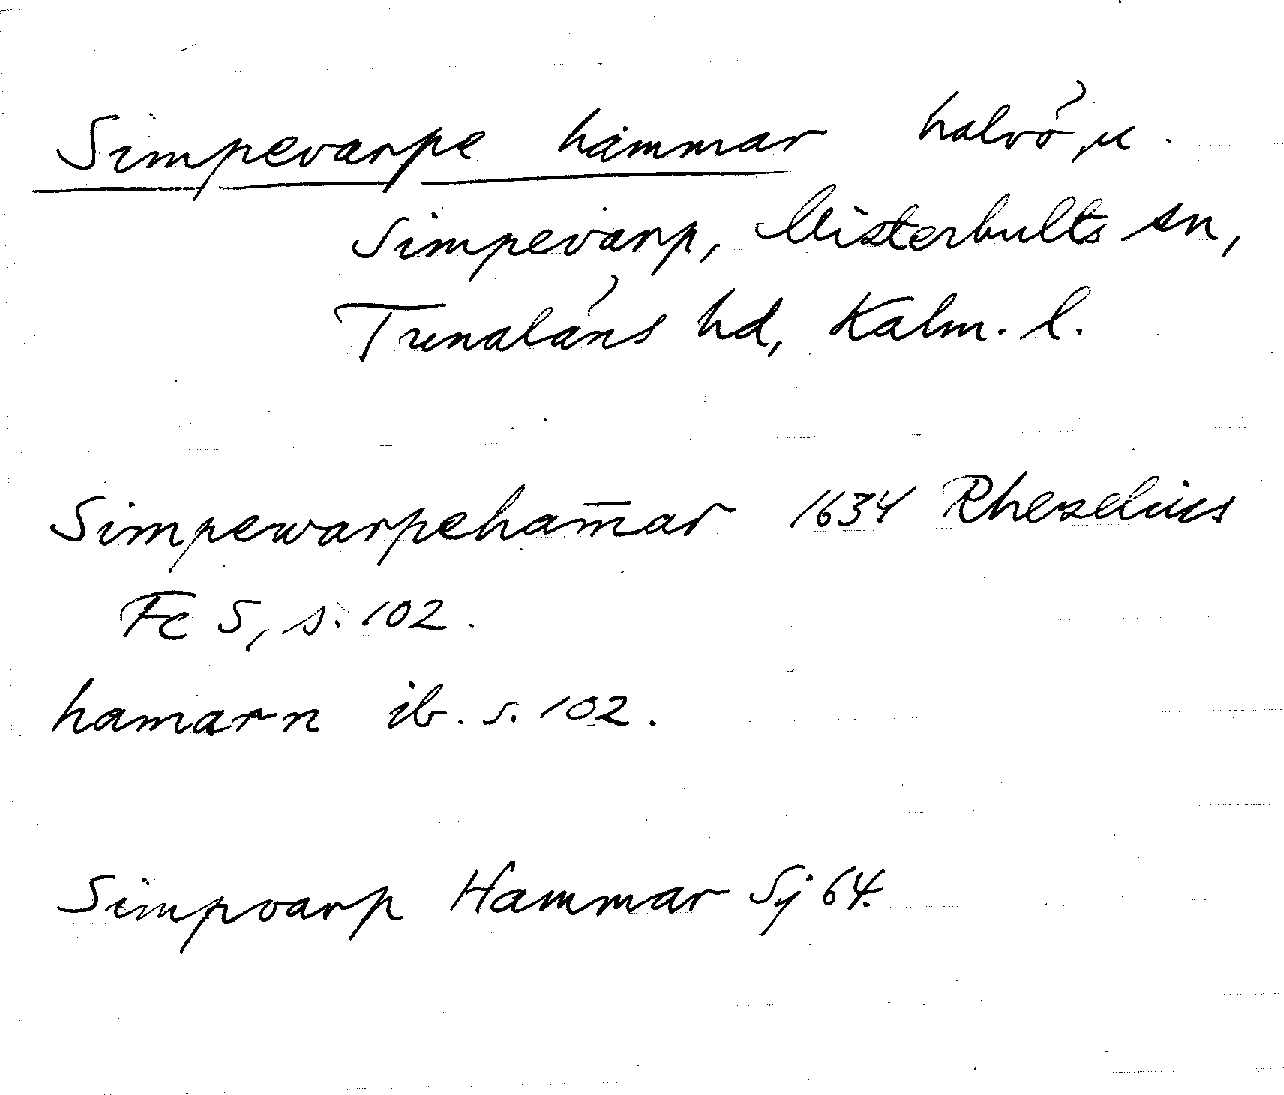 Simpevarpe hammar halvö, u.
Simpevarp, Misterhults sn,
Tunaläns hd, Kalm. l.
Simpewarpeham̄ar 1634 Rhezelius
Fc 5, s. 102.
hamarn ib. s. 102.
Simpvarp Hammar Sj 64.